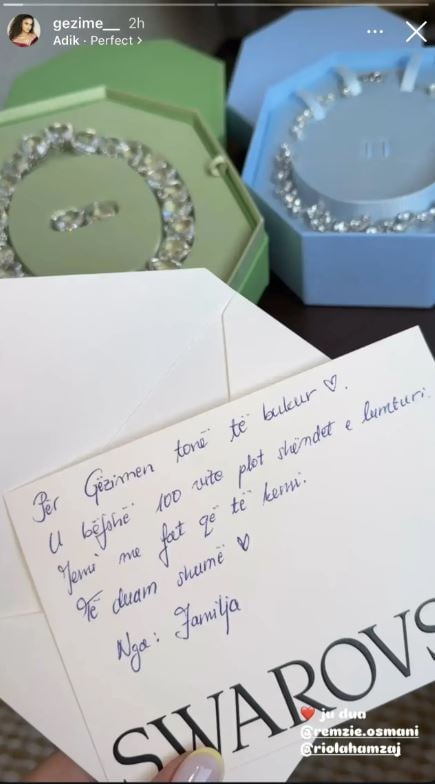 gezime__ 2h
Adik · Perfect >
Për Gëzimen tonë të bukur ♡.
U bëfshë 100 vite plot shëndet e lumturi.
Jemi me fat që të kemi.
Të duam shumë ♡
Nga: Familja
SWAROVS
❤️ ju dua
@remzie.osmani
@riolahamzaj